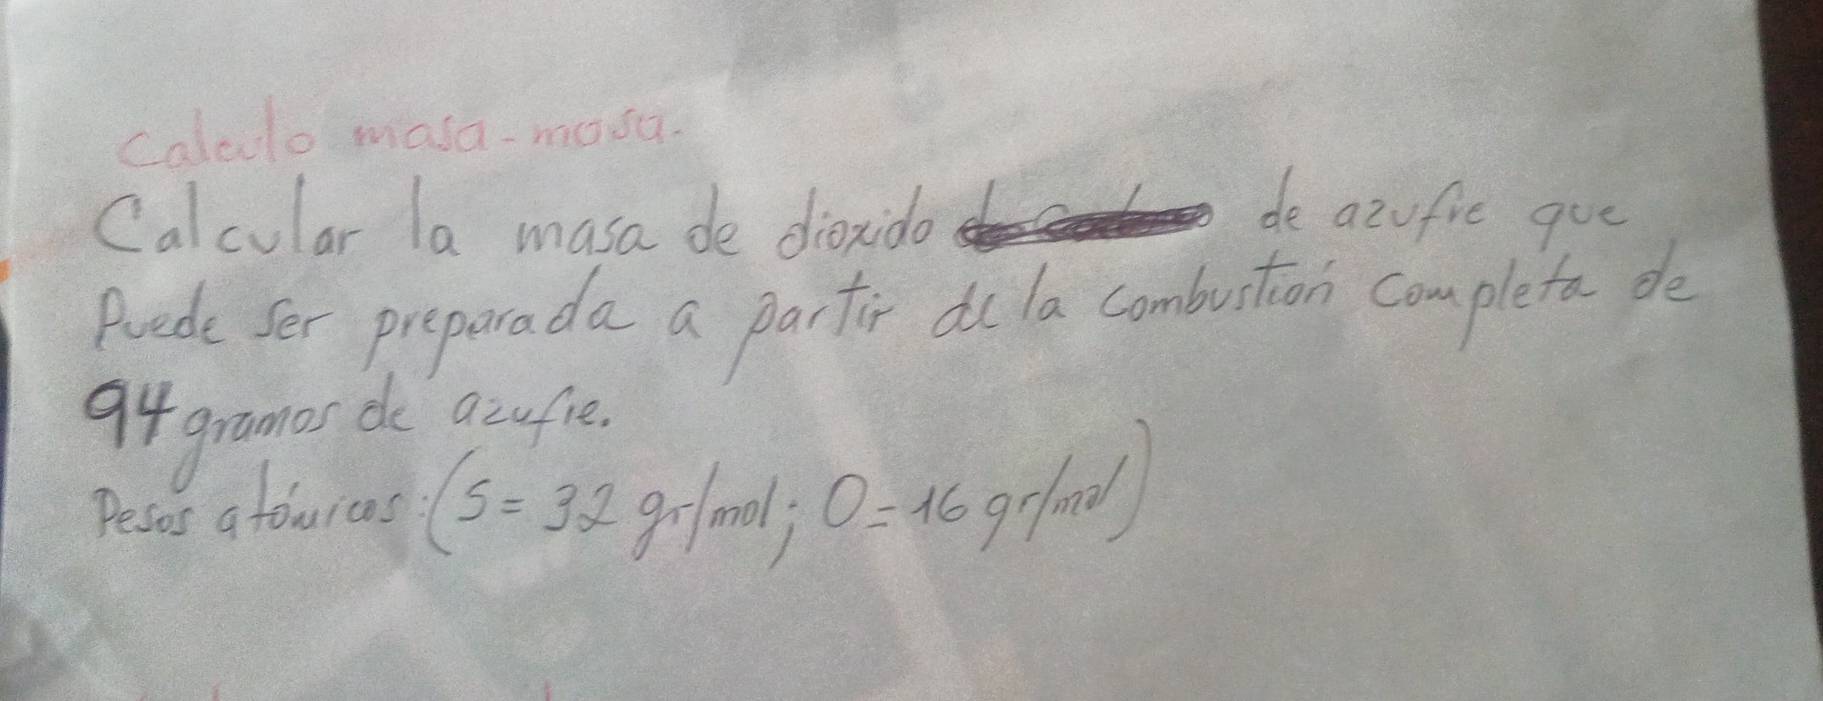 Calculo masa-masa.
Calcular la masa de dioxido de azufre que
Puede ser preparada a partir de la combustión completa de
94 gramos de azufre.
Pesos atómicos: (S = 32 gr/mol; O = 16 gr/mol)